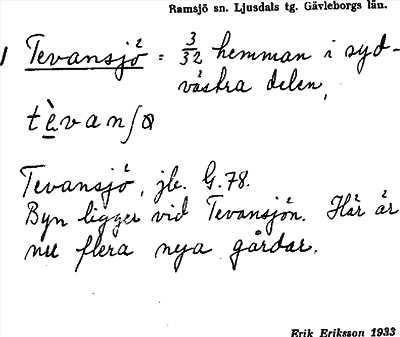 Ramsjö sn. Ljusdals tg. Gävleborgs län.
1 Tevansjö = 3/32 hemman i syd-
västra delen,
tèvanʃɷ
Tevansjö, jb. G.78.
Byn ligger vid Tevansjön. Här är
nu flera nya gårdar.
Erik Eriksson 1933